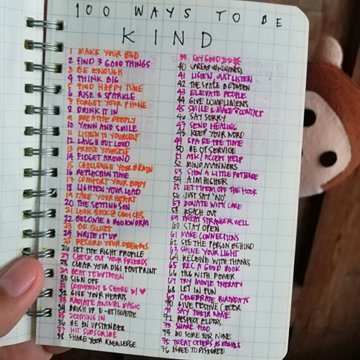 100 WAYS TO BE
KIND
1 MAKE YOUR BED
2 FIND 3 GOOD THINGS
3 BE ENOUGH
4 THINK BIG
5 FIND HAPPY TUNE
6 RISE & SPARKLE
7 FORGET YOUR PHONE
8 DRINK IT IN
9 BREATHE DEEPLY
10 YAWN AND SMILE
11 LISTEN TO YOURSELF
12 LAUGH OUT LOUD
13 PRAISE YOURSELF
14 FIDGET AROUND
15 CHALLENGE YOUR BRAIN
16 REFLECTION TIME
17 COMFORT YOUR BODY
18 LIGHTEN YOUR LOAD
19 TAKE YOUR HEART
20 THE SETTING SUN
21 LOOK BACK @ CHOICES
22 BECOME A BOOKWORM
23 BE QUIET
24 WRITE IT UP
25 RECORD YOUR DREAMS
26 SET THE RIGHT PROFILE
27 CHECK OUT YOUR FRIENDS
28 CLEAR YOUR DIGI FOOTPRINT
29 BEAT TEMPTATION
30 SIGN OFF
31 COMMENT & SHARE
32 GIVE YOUR HEARTS
33 RADIATE MUSICAL MAGIC
34 BRUSH UP E-ETIQUETTE
35 ZOOMING IN
36 BE AN UPSTANDER
37 HIT SUBSCRIBE
38 SHARE YOUR KNOWLEDGE
39 SAY GOOD
40 SPREAD
41 LISTEN, JUST LISTEN
42 THE SPACE BETWEEN
43 ELEVATE PEOPLE
44 GIVE COMPLIMENTS
45 SMILE & MAKE CONTACT
46 SAY SORRY
47 SEND HEALING
48 KEEP YOUR WORD
49 SPARE THE TIME
50 BE OF SERVICE
51 ASK / ACCEPT HELP
52 MIND MANNERS
53 SHOW A LITTLE PATIENCE
54 AIM HIGHER
55 LET THEM OFF THE HOOK
56 JUST SAY 'NO'
57 DONATE WITH CARE
58 REACH OUT
59 TREAT STRANGER WELL
60 STAY OPEN
61 MAKE CONNECTIONS
62 SEE THE PERSON BEHIND
63 MINGLE
64 RECEIVE WITH THANKS
65 REC A GOOD BOOK
66 TAG WITH POWER
67 TRY MOVIE THERAPY
68 LET IN FUN
69 CELEBRATE BIRTHDAYS
70 GIVE POSITIVE CRITICISM
71 SAY THEIR NAME
72 RESPECT ELDERS
73 SHARE FOOD
74 DO SOME FOR NONE
75 TREAT OTHERS AS EQUALS
76 AGREE TO DISAGREE